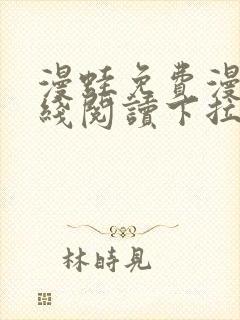 漫蛙免費漫
綫閱讀下拉
林時見